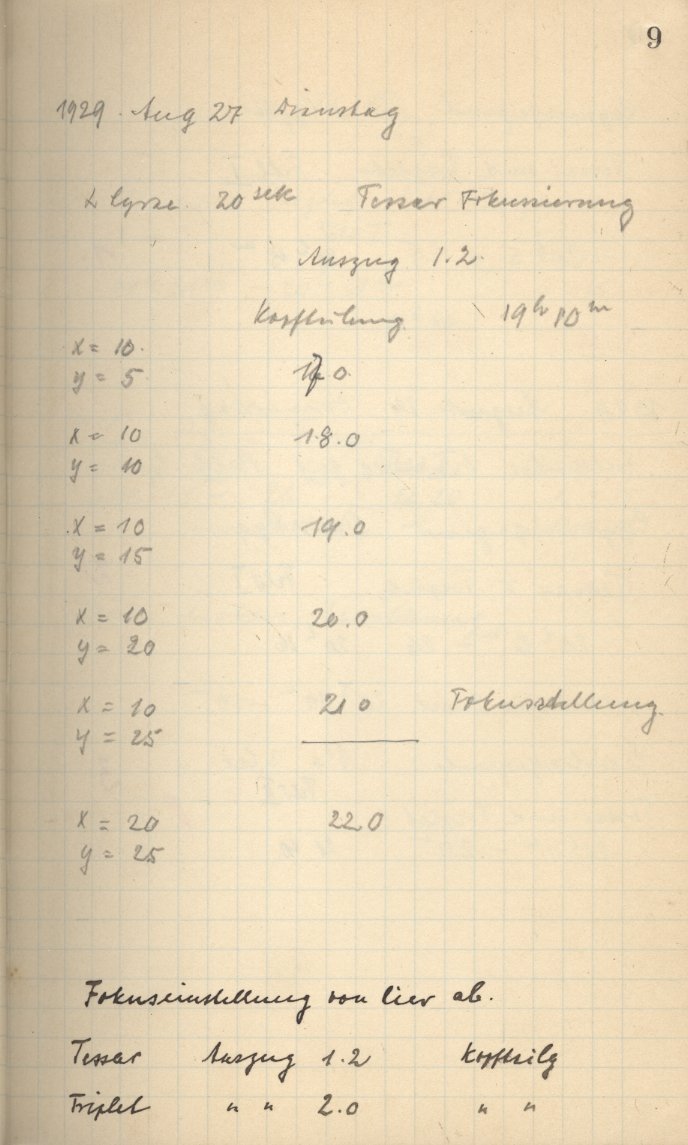 9
1929. Aug 27 Dienstag
α Lyrae. 20 sek Tessar Fokussierung
Auszug 1.2.
Kopfteilung 19h 10m
x = 10.
y = 5. 17.0
x = 10 18.0
y = 10
x = 10 19.0
y = 15
x = 10 20.0
y = 20
x = 10 21 0 Fokusstellung.
y = 25
x = 20 22.0
y = 25
Fokuseinstellung von hier ab.
Tessar Auszug 1.2 Kopfteilg
Triplet " " 2.0 " "